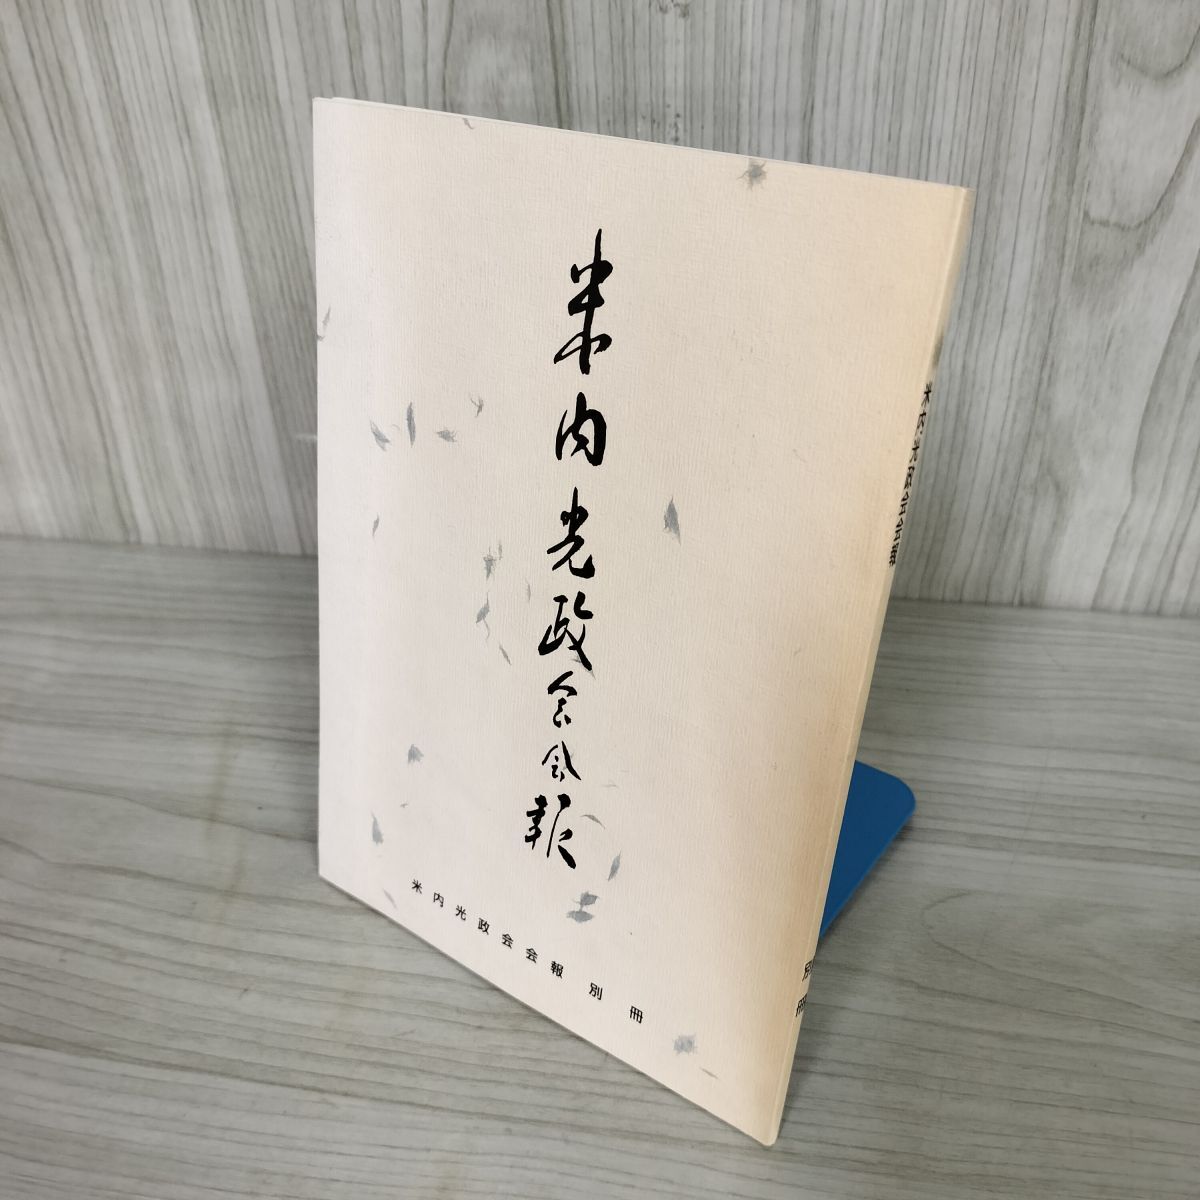 米内光政会会報
米内光政会会報 別冊
米内光政会会報 別冊